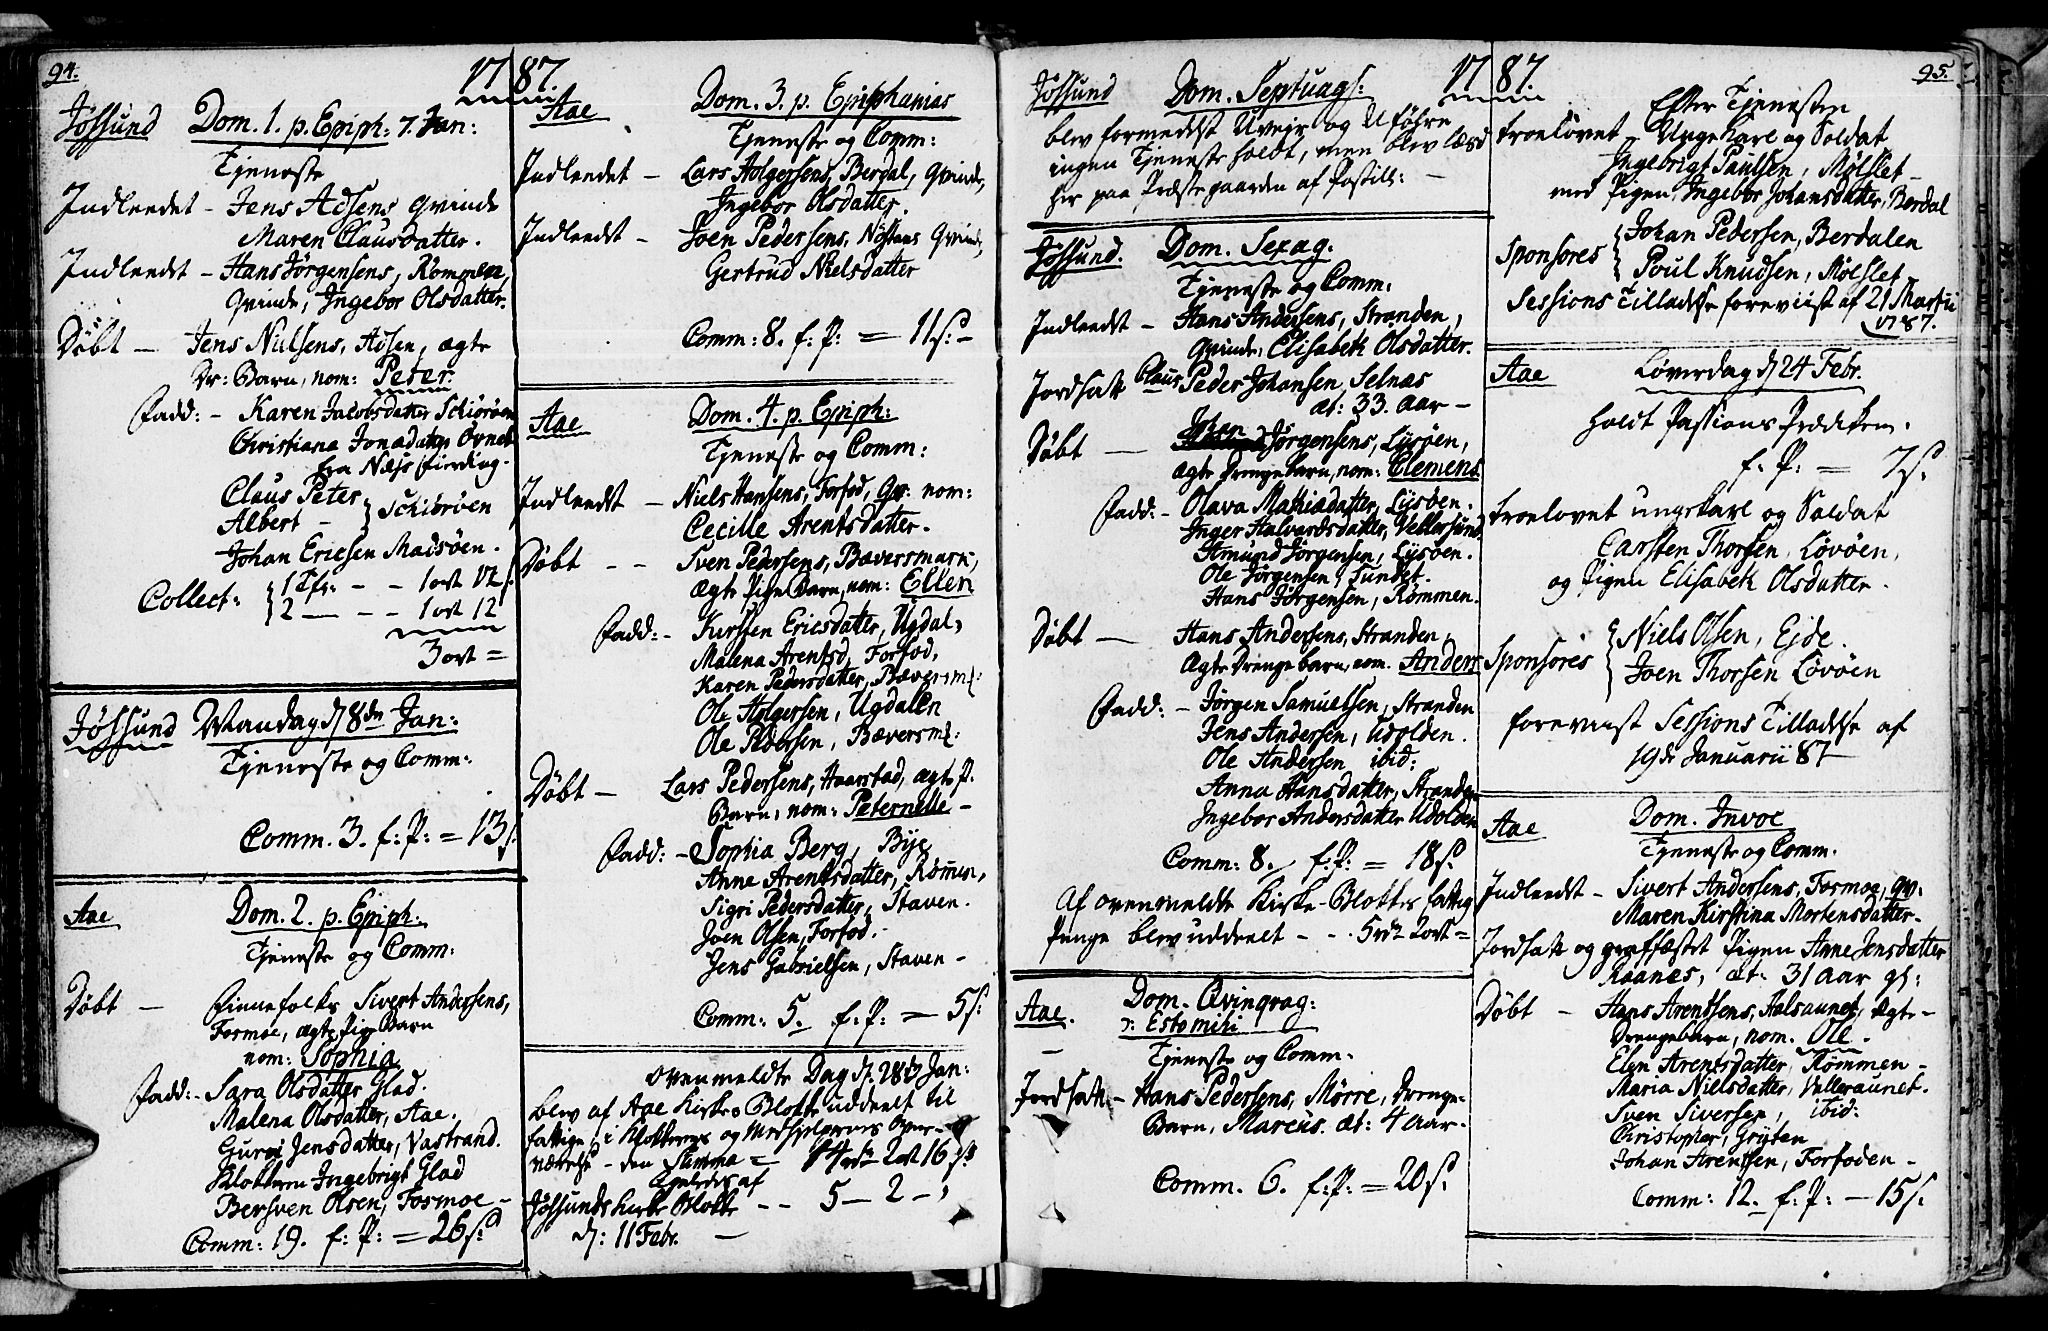 94.
1787.
Jössund Dom. 1. p. Epiph: 7. Jan:
Tjeneste
Indleedet - Jens Adsens Qvinde
Maren Clausdatter.
Indleedt - Hans Jørgensens, Rømmen,
Qvinde, Ingebor Olsdatter.
Døbt - Jens Nielsens, Adsen, ægte
Dr: Barn, nom: Peter.
Fadd: - Karen Jacobsdatter Schiørøen
Christiana Jonadatter Øvnet
fra Næss fierding.
Claus Peter
Albert - } Schiørøen
Johan Ericsen Madsøen.
Collect: { 1 Tfr: - - 1 ort 12 s:
2 - - - 1 ort 12
3 ort =
Jössund Mandag d 8de Jan:
Tjeneste og Comm:
Comm. 3. f: P: = 13 s:
Aae Dom. 2. p. Epiph:
Tjeneste og Comm:
Døbt - Finnefolks Sivert Andersens,
Formoe, ægte Pige Barn
nom: Sophia
Fadd: - Sara Olsdatter Glad.
Malena Olsdatter, Aae.
Guroe Jensdatter, Vastrand.
Klokkeren Ingebrigt Glad
Bersven Olsen, Fosmoe -
Comm: 19. f: P: = 26 s:
Aae Dom. 3. p. Epiphanias
Tjeneste og Comm:
Indleedet - Lars Holgersens, Berdal, Qvinde,
Ingebor Olsdatter.
Indleedt - Joen Pedersens, Nøstans Qvinde,
Gertrud Nielsdatter
Comm: 8. f: P: = 11 s: -
Aae Dom. 4. p. Epiph:
Tjeneste og Comm:
Indleedt - Niels Hansens, Forfod, Qv: nom:
Cecille Arentsdatter.
Døbt - - Sven Pedersens, Bæversmark,
ægte Pige Barn, nom: Ellen
Fadd: - Kirsten Ericsdatter, Ugdal,
Malena Arentsd, Forfod,
Karen Pedersdatter, Bæversm:
Ole Holgersen, Ugdalen
Ole Pedersen, Bæversm:
Døbt - Lars Pedersens, Haarstad, ægte P.
Barn, nom: Peternelle -
Fadd: - Sophia Berg, Bye,
Anne Arentsdatter, Rømmen,
Sigri Pedersdatter, Staven.
Joen Olsen, Forfod.
Jens Gabrielsen, Staven -
Comm: 5. f: P: = 5 s:
Ovenmeldte Dag d. 28de Jan:
blev af Aae Kirkes Blokke uddeelt til
fattige, i Klokkerens og Medhielpernes Over-
værelse - den Summa = 14 rdr 2 ort 16 s
Ligeledes af
Jössunds Kirke Blokke - - 5 - 2 - ,
d: 11 Febr. -
95.
1787.
Jössund Dom. Septuags:
blev formedelst Uveir og Uføhre
ingen Tjeneste holdt, men blev læsd
her paa Præstegaarden af Postill: -
Jössund. Dom. Sexag.
Tjeneste og Comm:
Indleedt - Hans Andersens, Stranden,
Qvinde, Elisabeth Olsdatter.
Jordsatt Claus Peder Johansen Selnæs
æt: 33. Aar -
Døbt - Johan Jørgensens, Lysøen,
ægte Drenge barn, nom: Clemens
Fadd: - Olava Mathiadatter, Lysøen.
Inger Halvardsdatter, Vallersund,
Amund Jørgensen, Lysøen.
Ole Jørgensen, Sundet.
Hans Jørgensen, Rømmen.
Døbt - Hans Andersens, Stranden,
ægte Drenge barn, nom. Anders
Fadd: - Jørgen Samuelsen, Stranden
Jens Andersen, Udolden.
Ole Andersen ibid:
Anna Hansdatter, Stranden
Ingebor Andersdatter Udolden
Comm: 8. f: P: = 18 s:
Af ovenmeldte Kirke-Blokkes fattig
Penge blev uddeelt - - 5 rdr 2 ort =
Aae. Dom. Qvinqvag:
ɔ: Estomihi
Tjeneste og Comm.
Jordsatt - Hans Pedersens, Mørre, Drenge-
Barn, Marcus. æt: 4 Aar.
Comm. 6. f: P: = 20 s:
Efter Tjenesten
Troelovet - Ungekarl og Soldat
Ingebrigt Paulsen, Mølslet -
med Pigen Ingebor Johansdatter, Berdal
Sponsores { Johan Pedersen, Berdalen
Poul Knudsen, Mølslet -
Sessions Tilladelse foreviist af 21 Martii
1787.
Aae Løverdag d 24 Febr.
holdt Passions Prædiken.
f: P: = 7 s.
Troelovet ungekarl og Soldat
Carsten Thorsen, Løvøen,
og Pigen Elisabeth Olsdatter.
Sponsores { Niels Olsen, Eide.
Joen Thorsen Løvøen
foreviist Sessions Tilladelse af
19de Januarii 87 -
Aae Dom. Invoc
Tjeneste og Comm.
Indleedt - Sivert Andersens, Fosmoe, qv:
Maren Kirstina Mortensdatter.
Jordsatt og graffæstet Pigen Anne Jensdatter
Raanes, æt: 31 Aar gl:
Døbt - Hans Arentsens, Aalsaunet, ægte -
Drengebarn, nom. Ole.
Elen Arentsdatter, Rømmen -
Maria Nielsdatter, Valleraunet.
Sven Siversen, ibid:
Christopher, Gryten
Johan Arentsen, Forfoden -
Comm: 12. f: P: - 15 s: